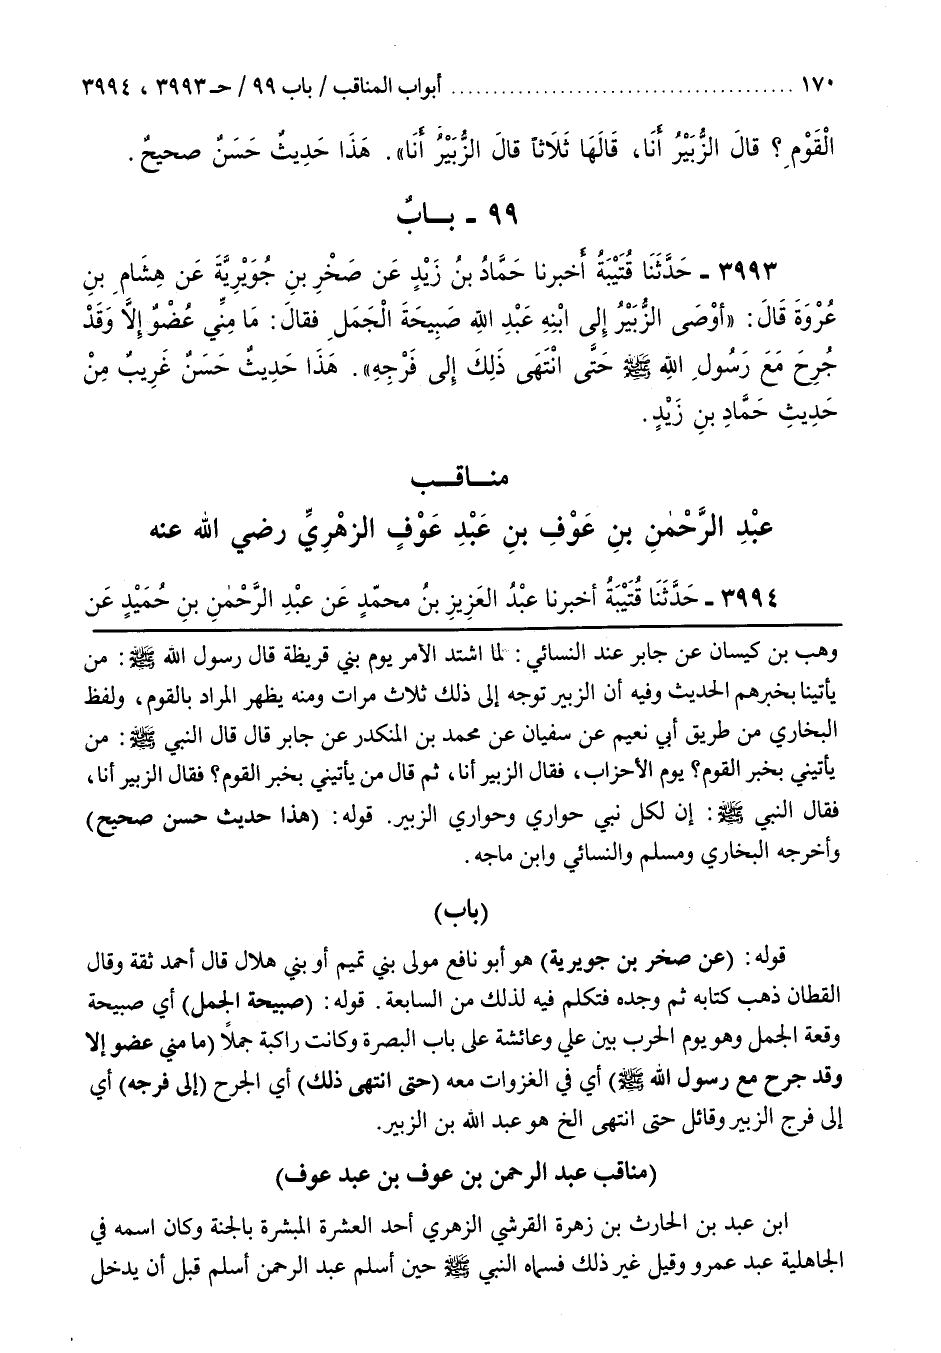 ١٧٠ ........................................ أبواب المناقب / باب ٩٩ / حـ ٣٩٩٣ ، ٣٩٩٤
الْقَوْمِ؟ قالَ الزُّبَيْرُ أَنَا، قَالَهَا ثَلَاثاً قالَ الزُّبَيْرُ أَنَا». هَذَا حَدِيثٌ حَسَنٌ صحيحٌ.
٩٩ ـ بــابٌ
٣٩٩٣ ـ حَدَّثَنَا قُتَيْبَةُ أَخبرنا حَمَّادُ بنُ زَيْدٍ عَن صَخْرِ بنِ جُوَيْرِيَّةَ عَن هِشَامِ بنِ
عُرْوَةَ قَالَ: «أوْصَى الزُّبَيْرُ إلى ابْنِهِ عَبْدِ اللهِ صَبِيحَةَ الْجَمَلِ فقالَ: مَا مِنِّي عُضْوٌ إلاَّ وَقَدْ
جُرِحَ مَعَ رَسُولِ اللهِ ﷺ حَتَّى انْتَهَى ذَلِكَ إلى فَرْجِهِ». هَذَا حَدِيثٌ حَسَنٌ غَرِيبٌ مِنْ
حَدِيثِ حَمَّادِ بنِ زَيْدٍ.
منــاقــب
عبْدِ الرَّحْمٰنِ بنِ عَوْفِ بنِ عَبْدِ عَوْفٍ الزهْرِيِّ رضي الله عنه
٣٩٩٤ ـ حَدَّثَنَا قُتَيْبَةُ أخبرنا عبْدُ العَزِيزِ بنُ محمّدٍ عَن عبْدِ الرَّحْمٰنِ بنِ حُمَيْدٍ عَن
وهب بن كيسان عن جابر عند النسائي: لما اشتد الأمر يوم بني قريظة قال رسول الله ﷺ: من
يأتينا بخبرهم الحديث وفيه أن الزبير توجه إلى ذلك ثلاث مرات ومنه يظهر المراد بالقوم، ولفظ
البخاري من طريق أبي نعيم عن سفيان عن محمد بن المنكدر عن جابر قال قال النبي ﷺ: من
يأتيني بخبر القوم؟ يوم الأحزاب، فقال الزبير أنا، ثم قال من يأتيني بخبر القوم؟ فقال الزبير أنا،
فقال النبي ﷺ: إن لكل نبي حواري وحواري الزبير. قوله: (هذا حديث حسن صحيح)
وأخرجه البخاري ومسلم والنسائي وابن ماجه.
(باب)
قوله: (عن صخر بن جويرية) هو أبو نافع مولى بني تميم أو بني هلال قال أحمد ثقة وقال
القطان ذهب كتابه ثم وجده فتكلم فيه لذلك من السابعة. قوله: (صبيحة الجمل) أي صبيحة
وقعة الجمل وهو يوم الحرب بين علي وعائشة على باب البصرة وكانت راكبة جملاً (ما مني عضو إلا
وقد جرح مع رسول الله ﷺ) أي في الغزوات معه (حتى انتهى ذلك) أي الجرح (إلى فرجه) أي
إلى فرج الزبير وقائل حتى انتهى الخ هو عبد الله بن الزبير.
(مناقب عبد الرحمن بن عوف بن عبد عوف)
ابن عبد بن الحارث بن زهرة القرشي الزهري أحد العشرة المبشرة بالجنة وكان اسمه في
الجاهلية عبد عمرو وقيل غير ذلك فسماه النبي ﷺ حين أسلم عبد الرحمن أسلم قبل أن يدخل